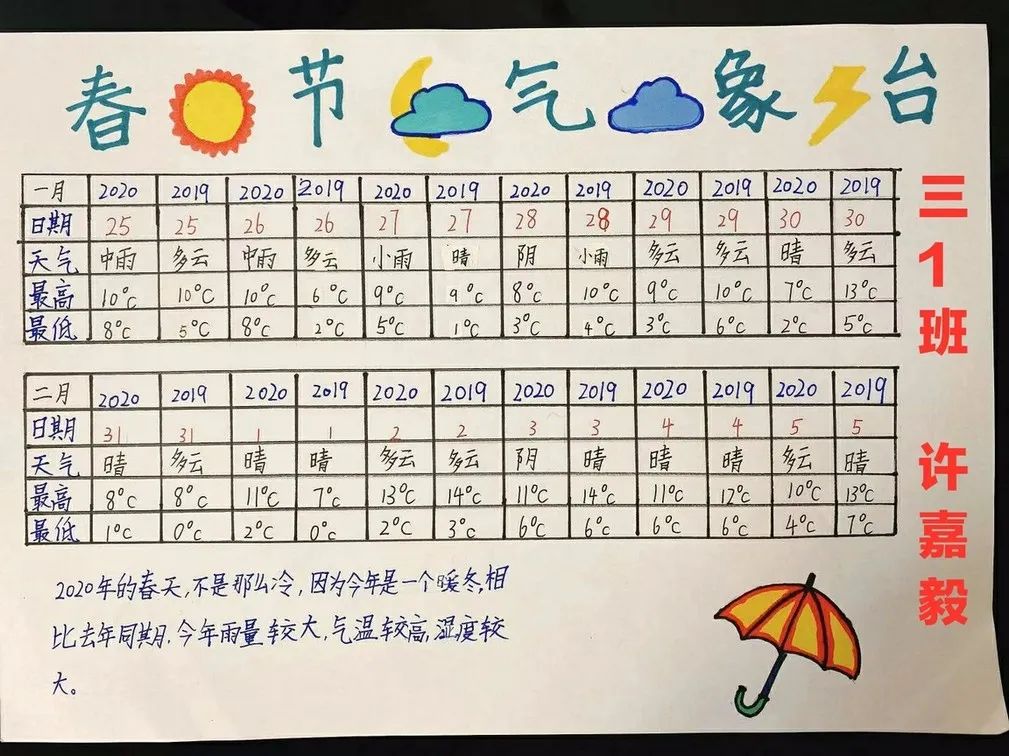 春节气象台
一月 2020 2019 2020 2019 2020 2019 2020 2019 2020 2019 2020 2019
日期 25 25 26 26 27 27 28 28 29 29 30 30
天气 中雨 多云 中雨 多云 小雨 晴 阴 小雨 多云 多云 晴 多云
最高 10°C 10°C 10°C 6°C 9°C 9°C 8°C 10°C 9°C 10°C 7°C 13°C
最低 8°C 5°C 8°C 2°C 5°C 1°C 3°C 4°C 3°C 6°C 2°C 5°C
二月 2020 2019 2020 2019 2020 2019 2020 2019 2020 2019 2020 2019
日期 31 31 1 1 2 2 3 3 4 4 5 5
天气 晴 多云 晴 晴 多云 多云 阴 晴 晴 晴 多云 晴
最高 8°C 8°C 11°C 7°C 13°C 14°C 11°C 14°C 11°C 12°C 10°C 13°C
最低 1°C 0°C 2°C 0°C 2°C 3°C 6°C 6°C 6°C 6°C 4°C 7°C
2020年的春天,不是那么冷,因为今年是一个暖冬,相
比去年同期,今年雨量较大,气温较高,湿度较
大。
三1班 许嘉毅